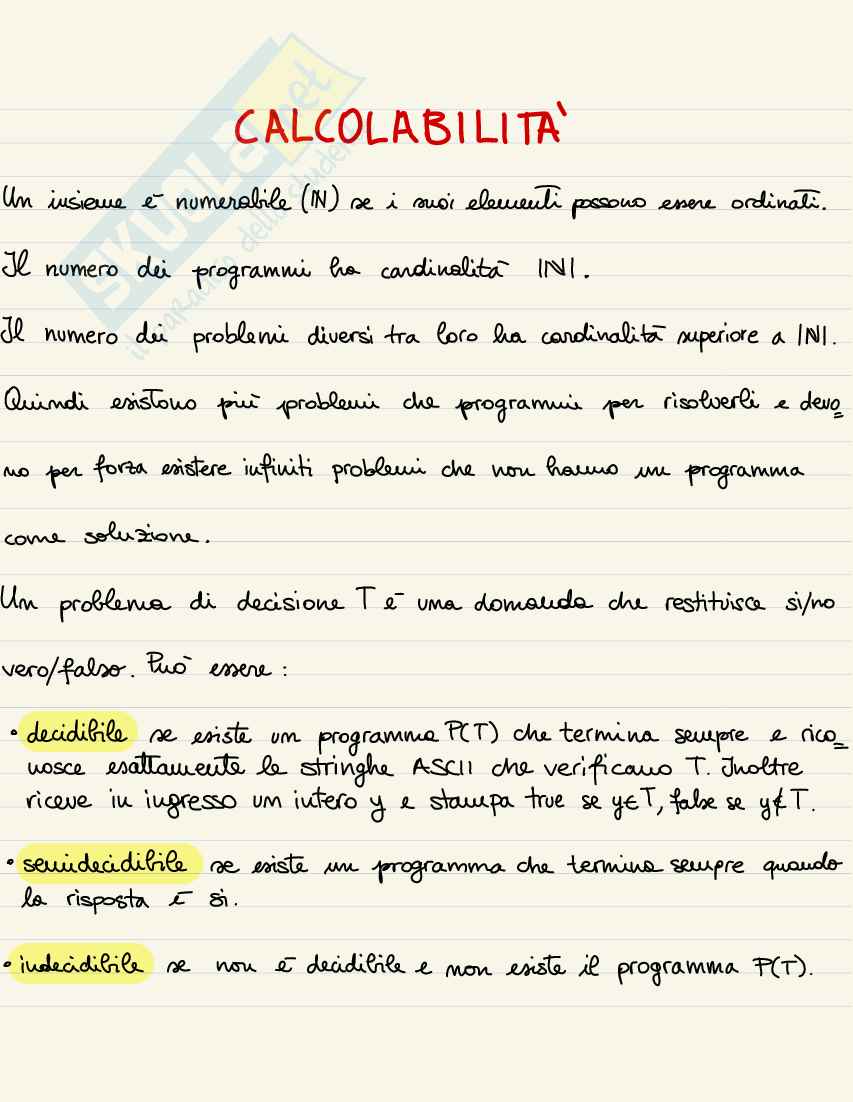 CALCOLABILITÀ
SKUOLA.net
il paradiso dello studente
Un insieme è numerabile (ℕ) se i suoi elementi possono essere ordinati.
Il numero dei programmi ha cardinalità |ℕ|.
Il numero dei problemi diversi tra loro ha cardinalità superiore a |ℕ|.
Quindi esistono più problemi che programmi per risolverli e devo=
no per forza esistere infiniti problemi che non hanno un programma
come soluzione.
Un problema di decisione T è una domanda che restituisce si/no
vero/falso. Può essere:
• decidibile se esiste un programma P(T) che termina sempre e rico=
nosce esattamente le stringhe ASCII che verificano T. Inoltre
riceve in ingresso un intero y e stampa true se y∈T, false se y∉T.
• semidecidibile se esiste un programma che termina sempre quando
la risposta è si.
• indecidibile se non è decidibile e non esiste il programma P(T).